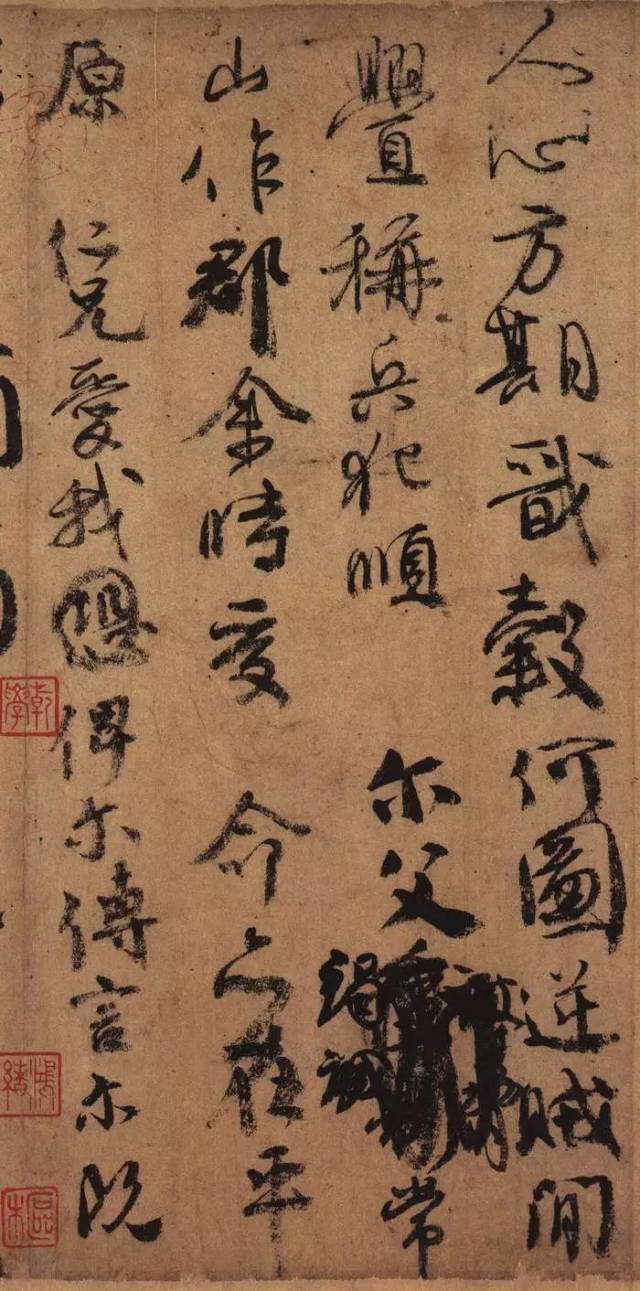 人心方期戩穀何圖逆賊間
舋稱兵犯順尔父竭誠常
山作郡余時受命亦在平
原仁兄愛我俾尔傳言尔既